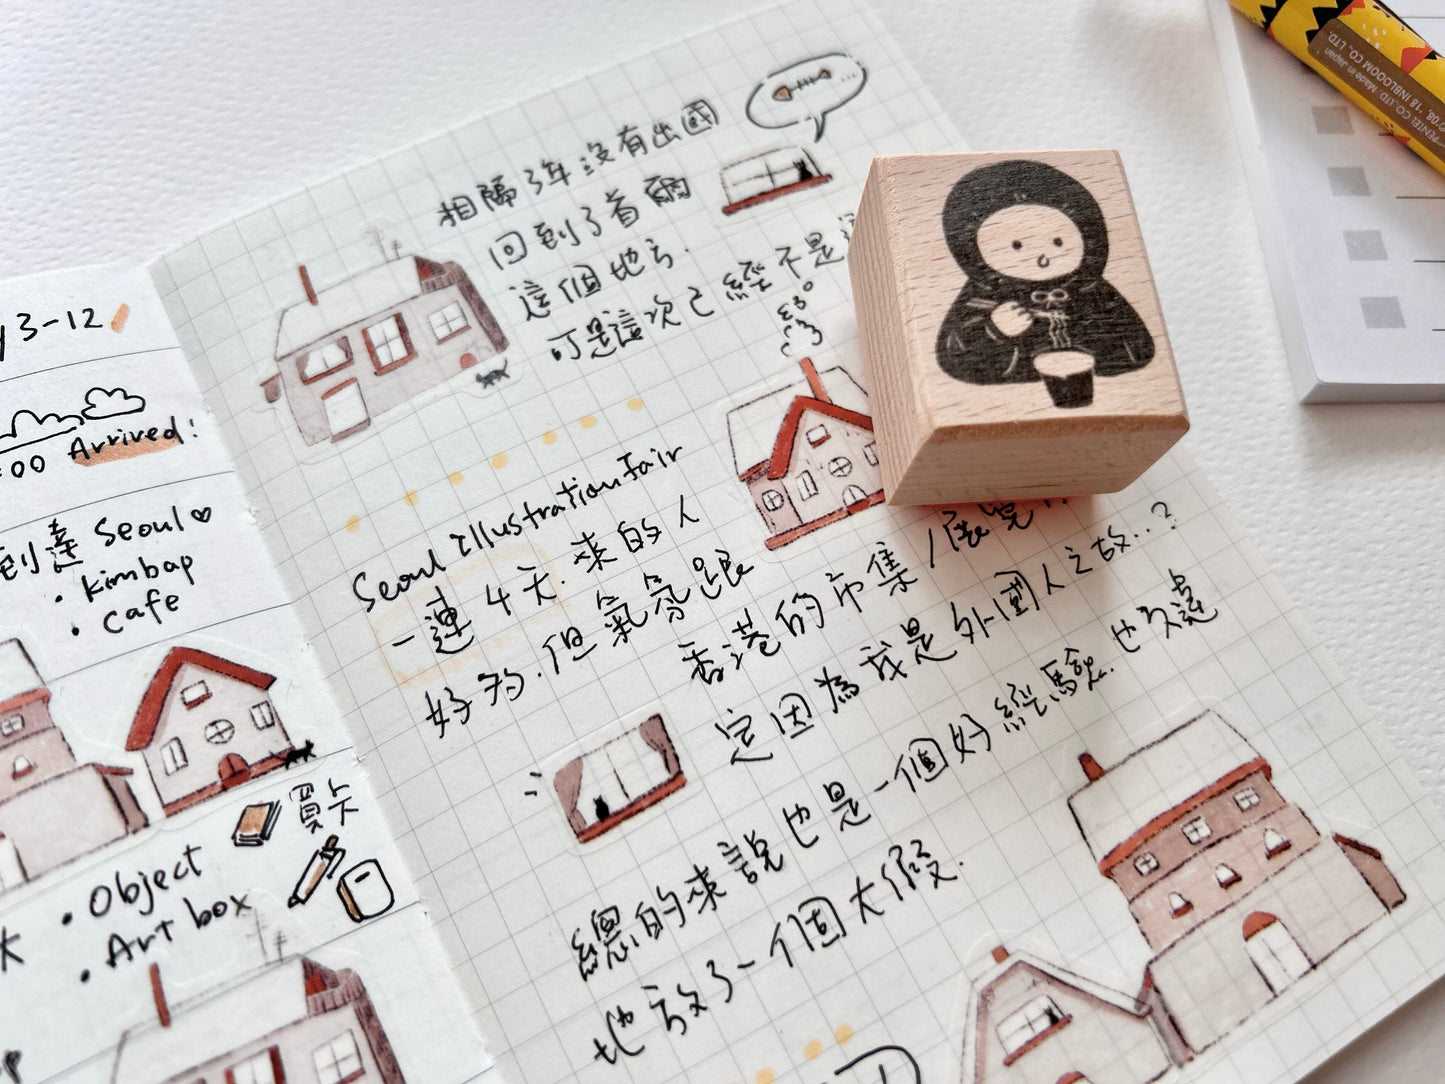 3-12
:00 Arrived!
到達 Seoul♡
• kimbap
• cafe
買文
• Object
• Art box
相隔3年沒有出國
回到了首爾
這個地方.
可是這次已經不是
Seoul Illustration Fair
一連4天.來的人
好多.但氣氛跟
香港的市集/展覽
定因為我是外國人之故..?
總的來說也是一個好經驗.也
地放了一個大假.
PENTEL CO., LTD. Made in Japan
'18 INBLOOOM CO., LTD.